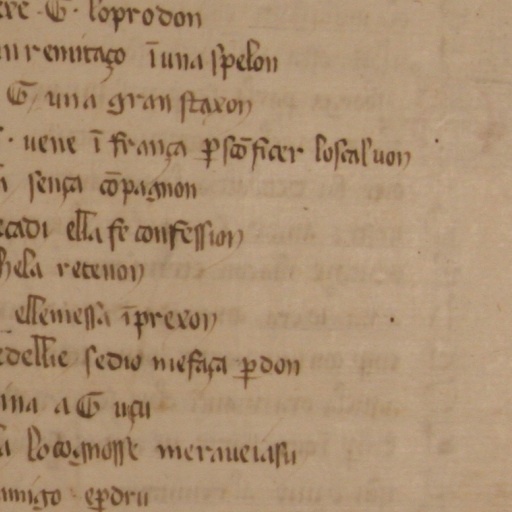 ere · G̅ · lo prodon
un remitaço ĩ una spelon
G̅ una gran staxon
· vene ĩ frança ꝑ sc̅o ficer lo scal uon
sença cõpagnon
cadi ella fe confession
hela retenon
elle messa ĩ prexon
dellie se dio me faça ꝑdon
ina a G̅ uçu
lo cognosse meraveiasu
amigo eꝑdru